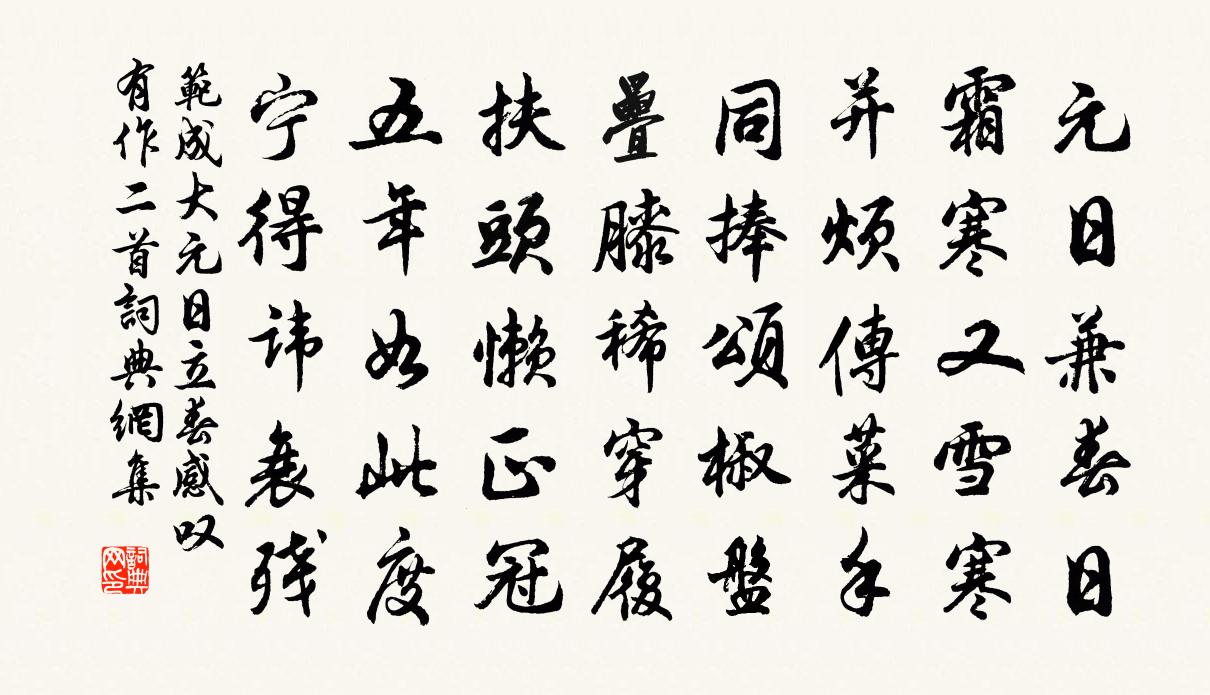 元日兼春日
霜寒又雪寒
并烦傳菜手
同捧頌椒盤
疊膝稀穿履
扶頭懶正冠
五年如此度
宁得讳衰残
範成大元日立春感叹
有作二首詞典網集
詞典
网印